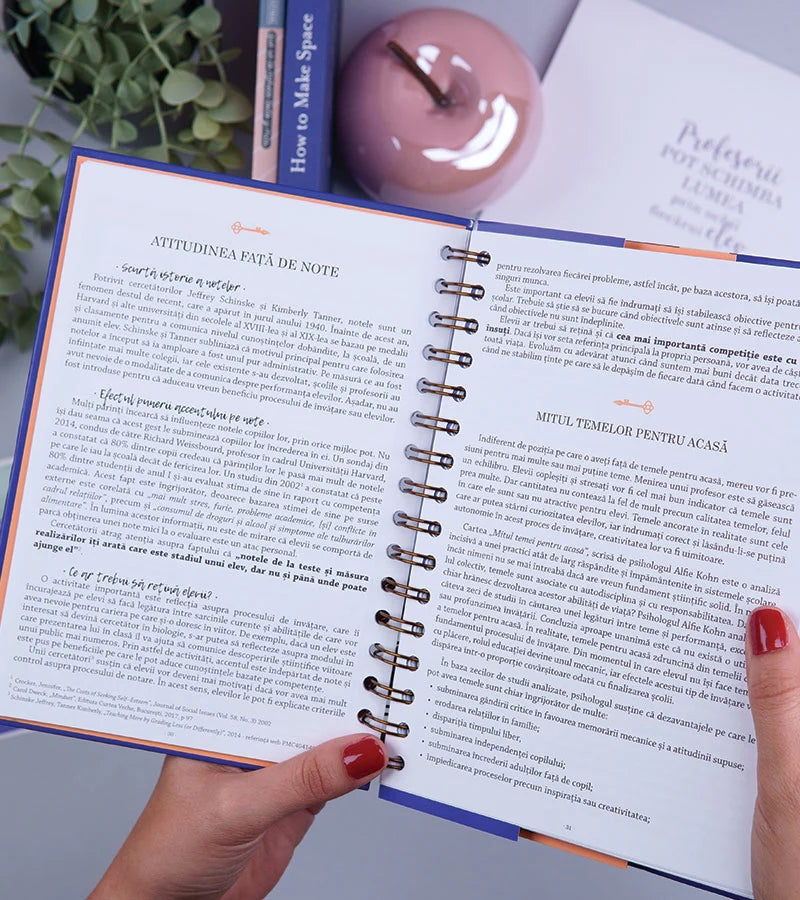 How to Make Space
Profesorii
POT SCHIMBA
LUMEA
prin ochii
fiecărui elev
ATITUDINEA FAȚĂ DE NOTE
· Scurtă istorie a notelor ·
Potrivit cercetătorilor Jeffrey Schinske si Kimberly Tanner, notele sunt un
fenomen destul de recent, care a apărut în jurul anului 1940. Înainte de acest an,
Harvard și alte universități din secolele al XVIII-lea și al XIX-lea se bazau pe medalii
și clasamente pentru a comunica nivelul cunoștințelor dobândite, la școală, de un
anumit elev. Schinske și Tanner subliniază că motivul principal pentru care folosirea
notelor a început să ia amploare a fost unul pur administrativ. Pe măsură ce au fost
înființate mai multe colegii, iar cele existente s-au dezvoltat, școlile și profesorii au
avut nevoie de o modalitate de a comunica despre performanța elevilor. Așadar, nu au
fost introduse pentru că aduceau vreun beneficiu procesului de învățare sau elevilor.
· Efectul punerii accentului pe note ·
Mulți părinți încearcă să influențeze notele copiilor lor, prin orice mijloc pot. Nu
își dau seama că acest gest le subminează copiilor lor încrederea în ei. Un sondaj din
2014, condus de către Richard Weissbourd, profesor în cadrul Universității Harvard,
a constatat că 80% dintre copii credeau că părinților lor le pasă mai mult de notele
pe care le iau la școală decât de fericirea lor. Un studiu din 2002¹ a constatat că peste
80% dintre studenții de anul I și-au evaluat stima de sine în raport cu competența
academică. Acest fapt este îngrijorător, deoarece bazarea stimei de sine pe surse
externe este corelată cu „mai mult stres, furie, probleme academice, [și] conflicte în
cadrul relațiilor”, precum și „consumul de droguri și alcool și simptome ale tulburărilor
alimentare”. În lumina acestor informații, nu este de mirare că elevii se comportă de
parcă obținerea unei note mici la o evaluare este un atac personal.
Cercetătorii atrag atenția asupra faptului că „notele de la teste și măsura
realizărilor îți arată care este stadiul unui elev, dar nu și până unde poate
ajunge el”².
· Ce ar trebui să rețină elevii? ·
O activitate importantă este reflecția asupra procesului de învățare, care îi
încurajează pe elevi să facă legătura între sarcinile curente și abilitățile de care vor
avea nevoie pentru cariera pe care și-o doresc în viitor. De exemplu, dacă un elev este
interesat să devină cercetător în biologie, s-ar putea să reflecteze asupra modului în
care prezentarea lui în clasă îl va ajuta să comunice descoperirile științifice viitoare
unui public mai numeros. Prin astfel de activități, accentul este îndepărtat de note și
este pus pe beneficiile pe care le pot aduce cunoștințele bazate pe competențe.
Unii cercetători³ susțin că elevii vor deveni mai motivați dacă vor avea mai mult
control asupra procesului de notare. În acest sens, elevilor le pot fi explicate criteriile
¹ Crocker, Jennifer, „The Costs of Seeking Self-Esteem”, Journal of Social Issues (Vol. 58, No. 3) 2002
² Carol Dweck, „Mindset”, Editura Curtea Veche, București, 2017, p 97
³ Schinske Jeffrey, Tanner Kimberly, „Teaching More by Grading Less (or Differently)”, 2014 - referința web
30
pentru rezolvarea fiecărei probleme, astfel încât, pe baza acestora, să își poată
singuri munca.
Este important ca elevii să fie îndrumați să își stabilească obiective pentru
școlar. Trebuie să știe să se bucure când obiectivele sunt atinse și să reflecteze a
când obiectivele nu sunt îndeplinite.
Elevii ar trebui să rețină și că cea mai importantă competiție este cu
înșiși. Dacă își vor seta referința principală la propria persoană, vor avea de câș
toată viața. Evoluăm cu adevărat atunci când suntem mai buni decât data trecu
când ne stabilim ținte pe care să le depășim de fiecare dată când facem o activitate
MITUL TEMELOR PENTRU ACASĂ
Indiferent de poziția pe care o aveți față de temele pentru acasă, mereu vor fi pre-
siuni pentru mai multe sau mai puține teme. Menirea unui profesor este să găsească
un echilibru. Elevii copleșiți și stresați vor fi cel mai bun indicator că temele sunt
prea multe. Dar cantitatea nu contează la fel de mult precum calitatea temelor, felul
în care ele sunt sau nu atractive pentru elevi. Temele ancorate în realitate sunt cele
care ar putea stârni curiozitatea elevilor, iar îndrumați corect și lăsându-li-se puțină
autonomie în acest proces de învățare, creativitatea lor va fi uimitoare.
Cartea „Mitul temei pentru acasă”, scrisă de psihologul Alfie Kohn este o analiză
incisivă a unei practici atât de larg răspândite și împământenite în sistemele școlare
încât nimeni nu se mai întreabă dacă are vreun fundament științific solid. În
lul colectiv, temele sunt asociate cu autodisciplina și cu responsabilitatea. Da
chiar hrănesc dezvoltarea acestor abilități de viață? Psihologul Alfie Kohn anali
câteva zeci de studii în căutarea unei legături între teme și performanță, exce
sau profunzimea învățării. Concluzia aproape unanimă este că nu există o uti
a temelor pentru acasă. În realitate, temele pentru acasă zdruncină din temelii c
fundamentul procesului de învățare. Din momentul în care elevul nu își face tem
cu plăcere, rolul educației devine unul mecanic, iar efectele acestui tip de învățare v
dispărea într-o proporție covârșitoare odată cu finalizarea școlii.
În baza zecilor de studii analizate, psihologul susține că dezavantajele pe care le
pot avea temele sunt chiar îngrijorător de multe:
• subminarea gândirii critice în favoarea memorării mecanice și a atitudinii supuse;
• erodarea relațiilor în familie;
• dispariția timpului liber,
• subminarea independenței copilului;
• subminarea încrederii adulților față de copil;
• împiedicarea proceselor precum inspirația sau creativitatea;
31